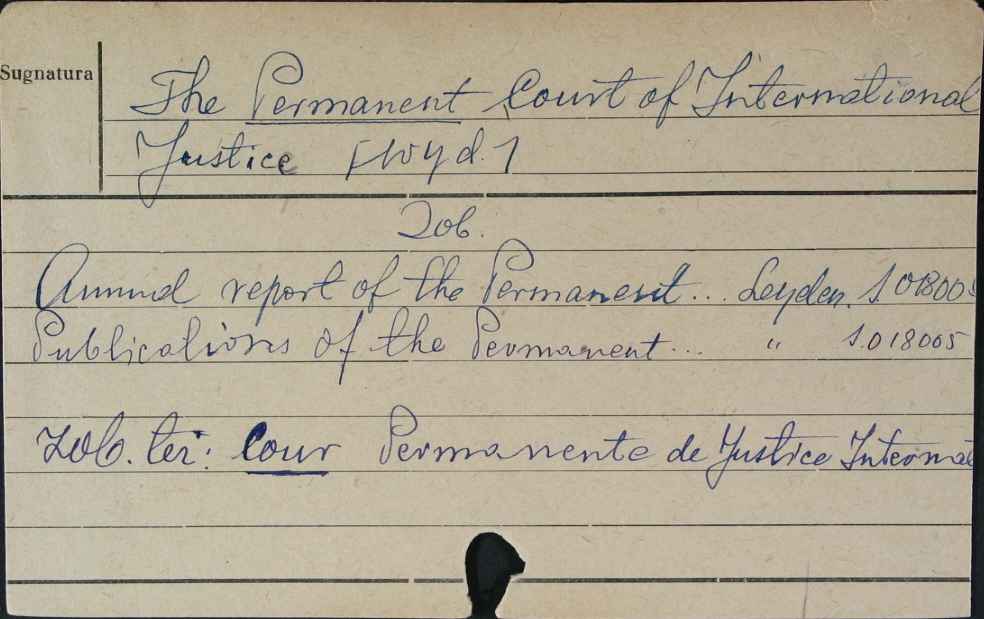 Sugnatura
The Permanent Court of International
Justice [wyd.]
Zob.
Annual report of the Permanent... Leyden. S.018005
Publications of the Permanent... " S.018005
Zob. też: Cour Permanente de Justice Internat